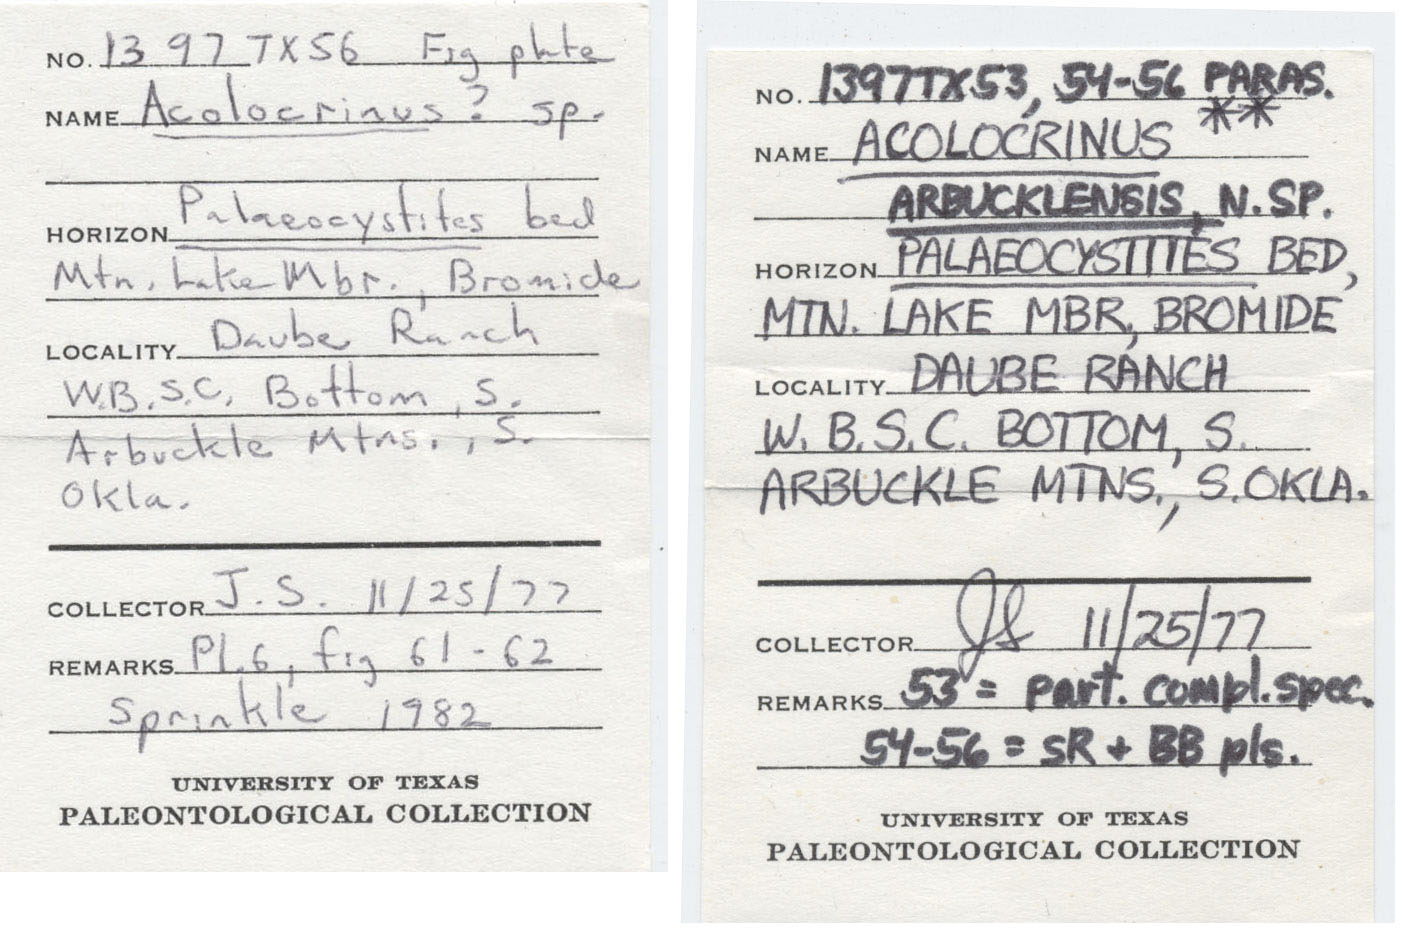 NO. 1397TX56 Fig plate
NAME Acolocrinus? sp.
HORIZON Palaeocystites bed
Mtn. Lake Mbr., Bromide
LOCALITY Daube Ranch
W.B.S.C. Bottom, S.
Arbuckle Mtns., S.
Okla.
COLLECTOR J.S. 11/25/77
REMARKS Pl.6, fig 61-62
Sprinkle 1982
UNIVERSITY OF TEXAS
PALEONTOLOGICAL COLLECTION
NO. 1397TX53, 54-56 PARAS.
**
NAME ACOLOCRINUS
ARBUCKLENSIS, N.SP.
HORIZON PALAEOCYSTITES BED,
MTN. LAKE MBR, BROMIDE
LOCALITY DAUBE RANCH
W.B.S.C. BOTTOM, S.
ARBUCKLE MTNS., S.OKLA.
COLLECTOR JS 11/25/77
REMARKS 53 = part. compl. spec.
54-56 = SR + BB pls.
UNIVERSITY OF TEXAS
PALEONTOLOGICAL COLLECTION